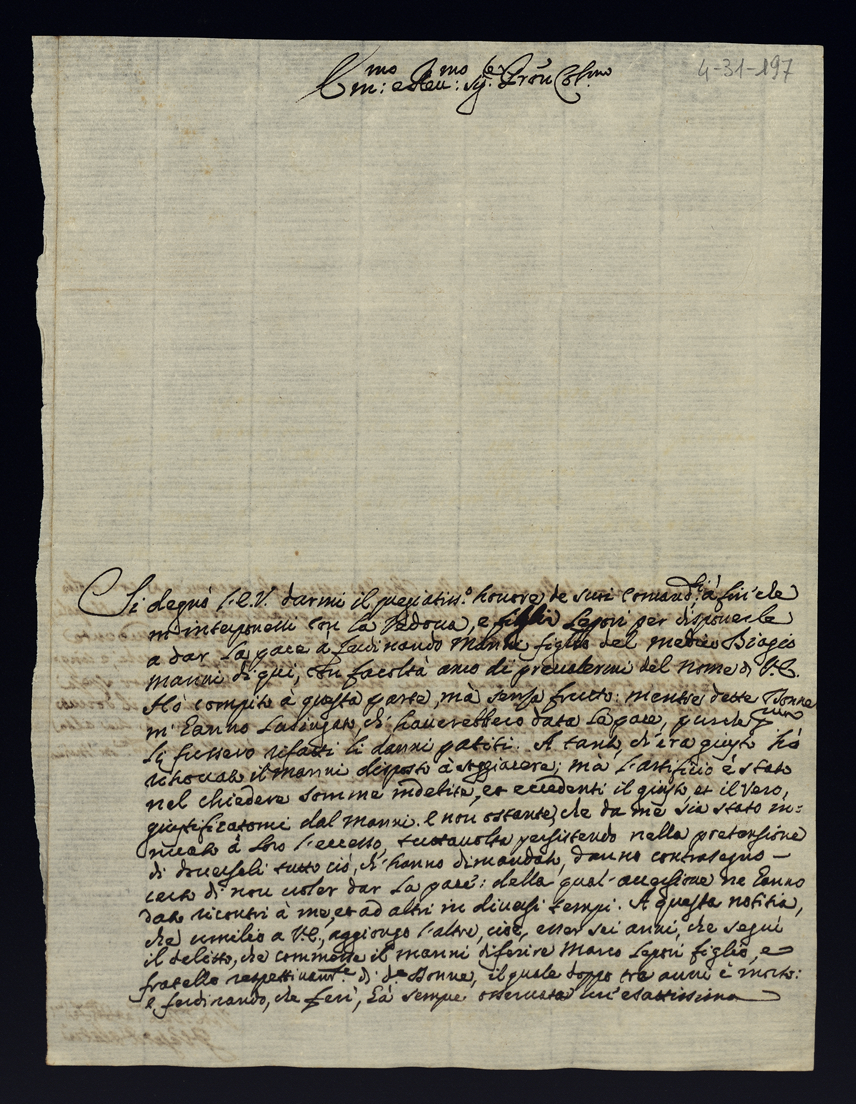 4-31-197
Em:mo e Reu:mo Sig:re Pron Col:mo
Si degnò l'E.V. darmi il pregiatiss.o honore de suoi Comand:i à fin'che
m'interponessi con la Vedoua, e figlij Lepori per disponerle
a dar la pace à Ferdinando Manni figlio del medico Biagio
Manni di qui, con facoltà anco di preualermi del nome di V.E.
Hò compito à questa parte, mà senza frutto: mentre dette Donne
m'hanno lusingato, ch'hauerebbero data la pace, purche
li fussero rifatti li danni patiti. A tanto ch'era giusto hò
ritrouato il Manni disposto à soggiacere; mà l'artificio è stato
nel chiedere somme indebite, et eccedenti il giusto et il vero,
giustificatomi dal Manni. E non ostante, che da me sia stato in=
nuato à loro l'eccesso, tuttauolta persistendo nella pretensione
di douerseli tutto ciò, ch'hanno dimandato, danno contrasegno
certo di non uoler dar la pace: della qual auuersione ne hanno
dato riscontri à me, et ad altri in diuersi tempi. A questa notitia,
che umilio a V.E., aggiungo l'altre, cioè, esser sei anni, che seguì
il delitto, che commesse il Manni di ferire Marco Lepori figlio, e
fratello respettiuam.te di d.e Donne, il quale doppo tre anni è morto:
e Ferdinando, che ferì, hà sempre osseruata un'esattissima